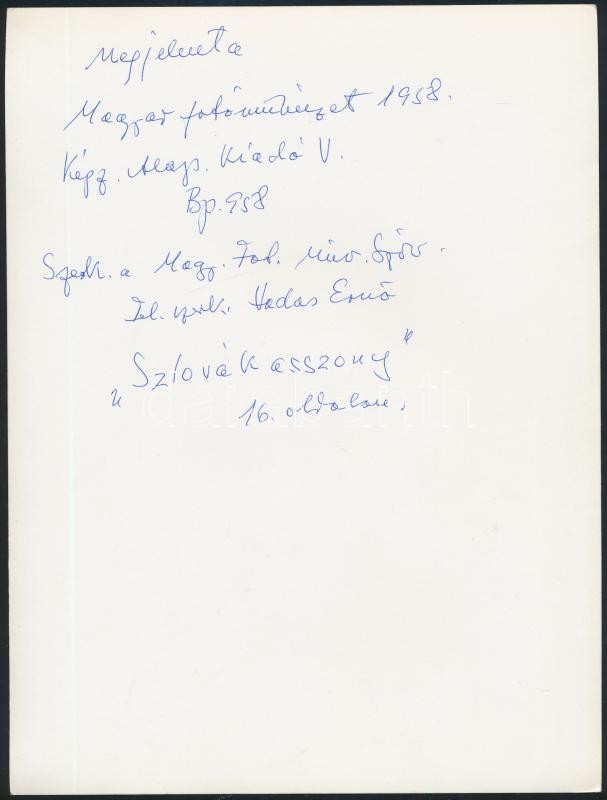 Megjelent a
Magyar fotóművészet 1958.
Képz. Alap. Kiadó V.
Bp. 958
Szerk. a Magy. Fot. Műv. Szöv.
Fel. szerk. Vadas Ernő
„Szlovák asszony"
16. oldalon.
darabanth